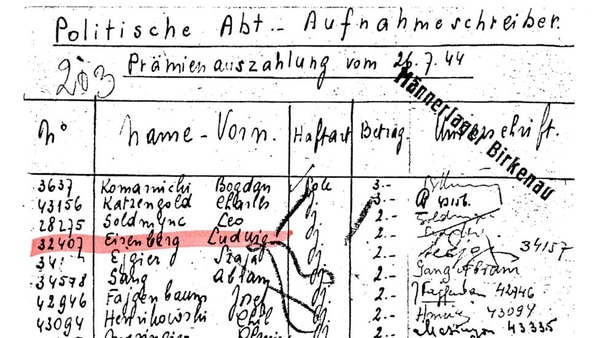 Politische Abt- Aufnahmeschreiber.
203 Prämienauszahlung vom 26.7.44
Männerlager Birkenau
No Name-Vorn. Haftart Betrag. Unterschrift.
3637 Komarnicki Bogdan Pole 3.-
43156 Katzengold Charles J. 3.- 43156.
28275 Soldmync Leo J. 2.-
32407 Eisenberg Ludwig J. 2.-
Eigier Szaja J. 2.- 34157
34578 Sang Abram J. 2.- Sang Abram
42946 Fajgenbaum Josef J. 2.- 42946
43094 Henrikowski J. 2.- 43094
2.- 43335